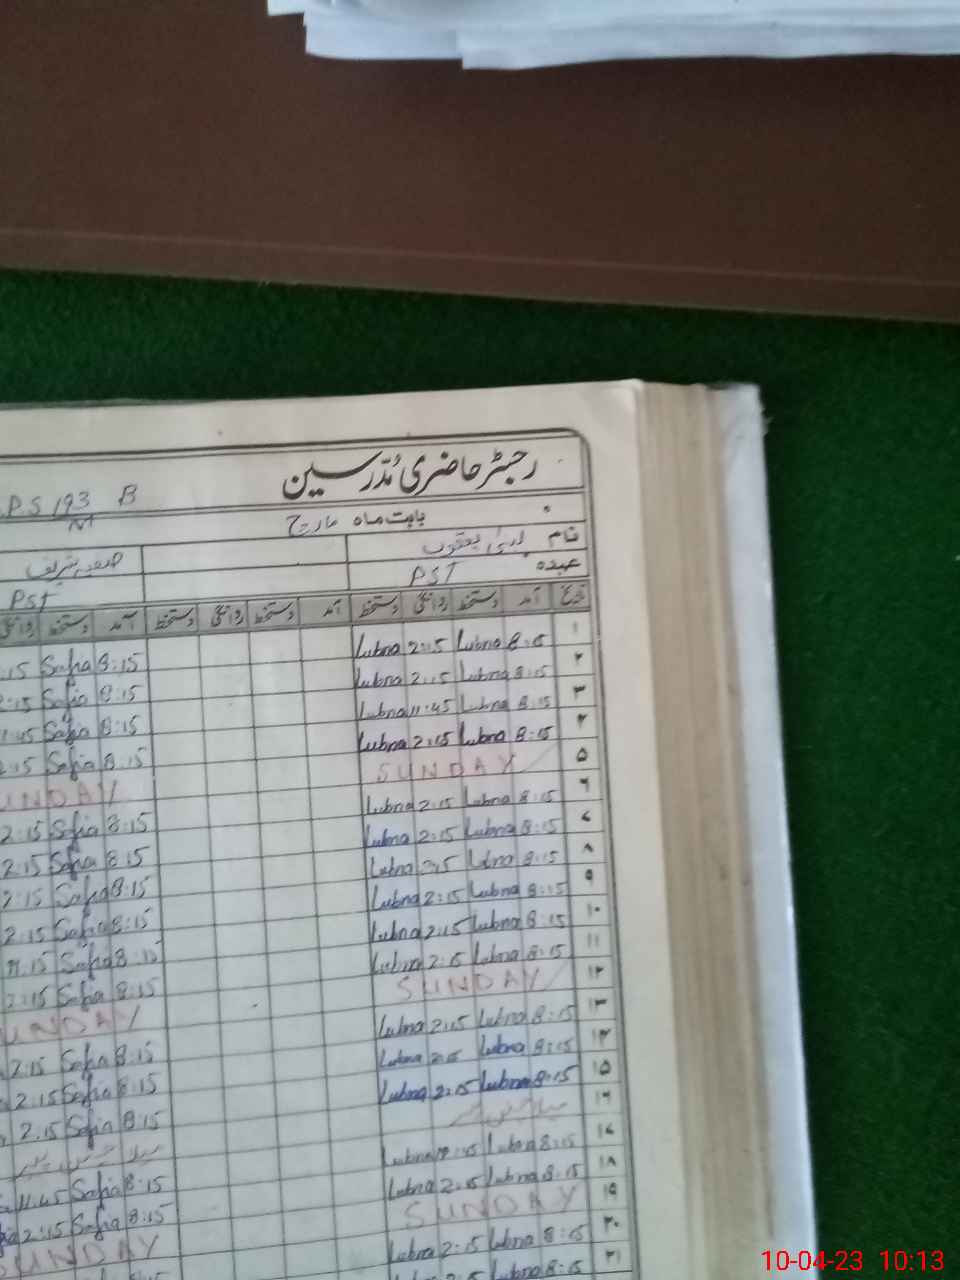 رجسٹر حاضری مُدرسین
P S 193 B
بابت ماہ مارچ
نام لبنیٰ یعقوب صفیہ شریف
عہدہ PST PST
تاریخ آمد دستخط روانگی دستخط آمد دستخط روانگی دستخط آمد دستخط روانگی
۱ 8:15 Lubna 2:15 Lubna 8:15 Safia :15
۲ 8:15 Lubna 2:15 Lubna 8:15 Safia 2:15
۳ 8:15 Lubna 11:45 Lubna 8:15 Safia 1:45
۴ 8:15 Lubna 2:15 Lubna 8:15 Safia 2:15
۵ SUNDAY UNDAY
۶ 8:15 Lubna 2:15 Lubna 8:15 Safia 2:15
۷ 8:15 Lubna 2:15 Lubna 8:15 Safia 2:15
۸ 8:15 Lubna 2:15 Lubna 8:15 Safia 2:15
۹ 8:15 Lubna 2:15 Lubna 8:15 Safia 2:15
۱۰ 8:15 Lubna 2:15 Lubna 8:15 Safia
۱۱ 8:15 Lubna 2:15 Lubna 8:15 Safia 2:15
۱۲ SUNDAY UNDAY
۱۳ 8:15 Lubna 2:15 Lubna 8:15 Safia 2:15
۱۴ 8:15 Lubna 2:15 Lubna 8:15 Safia 2:15
۱۵ 8:15 Lubna 2:15 Lubna 8:15 Safia 2:15
۱۶
۱۷ 8:15 Lubna Lubna 8:15 Safia 11:45
۱۸ 8:15 Lubna 2:15 Lubna 8:15 Safia 2:15
۱۹ SUNDAY UNDAY
۲۰ 8:15 Lubna 2:15 Lubna
۲۱
10-04-23 10:13